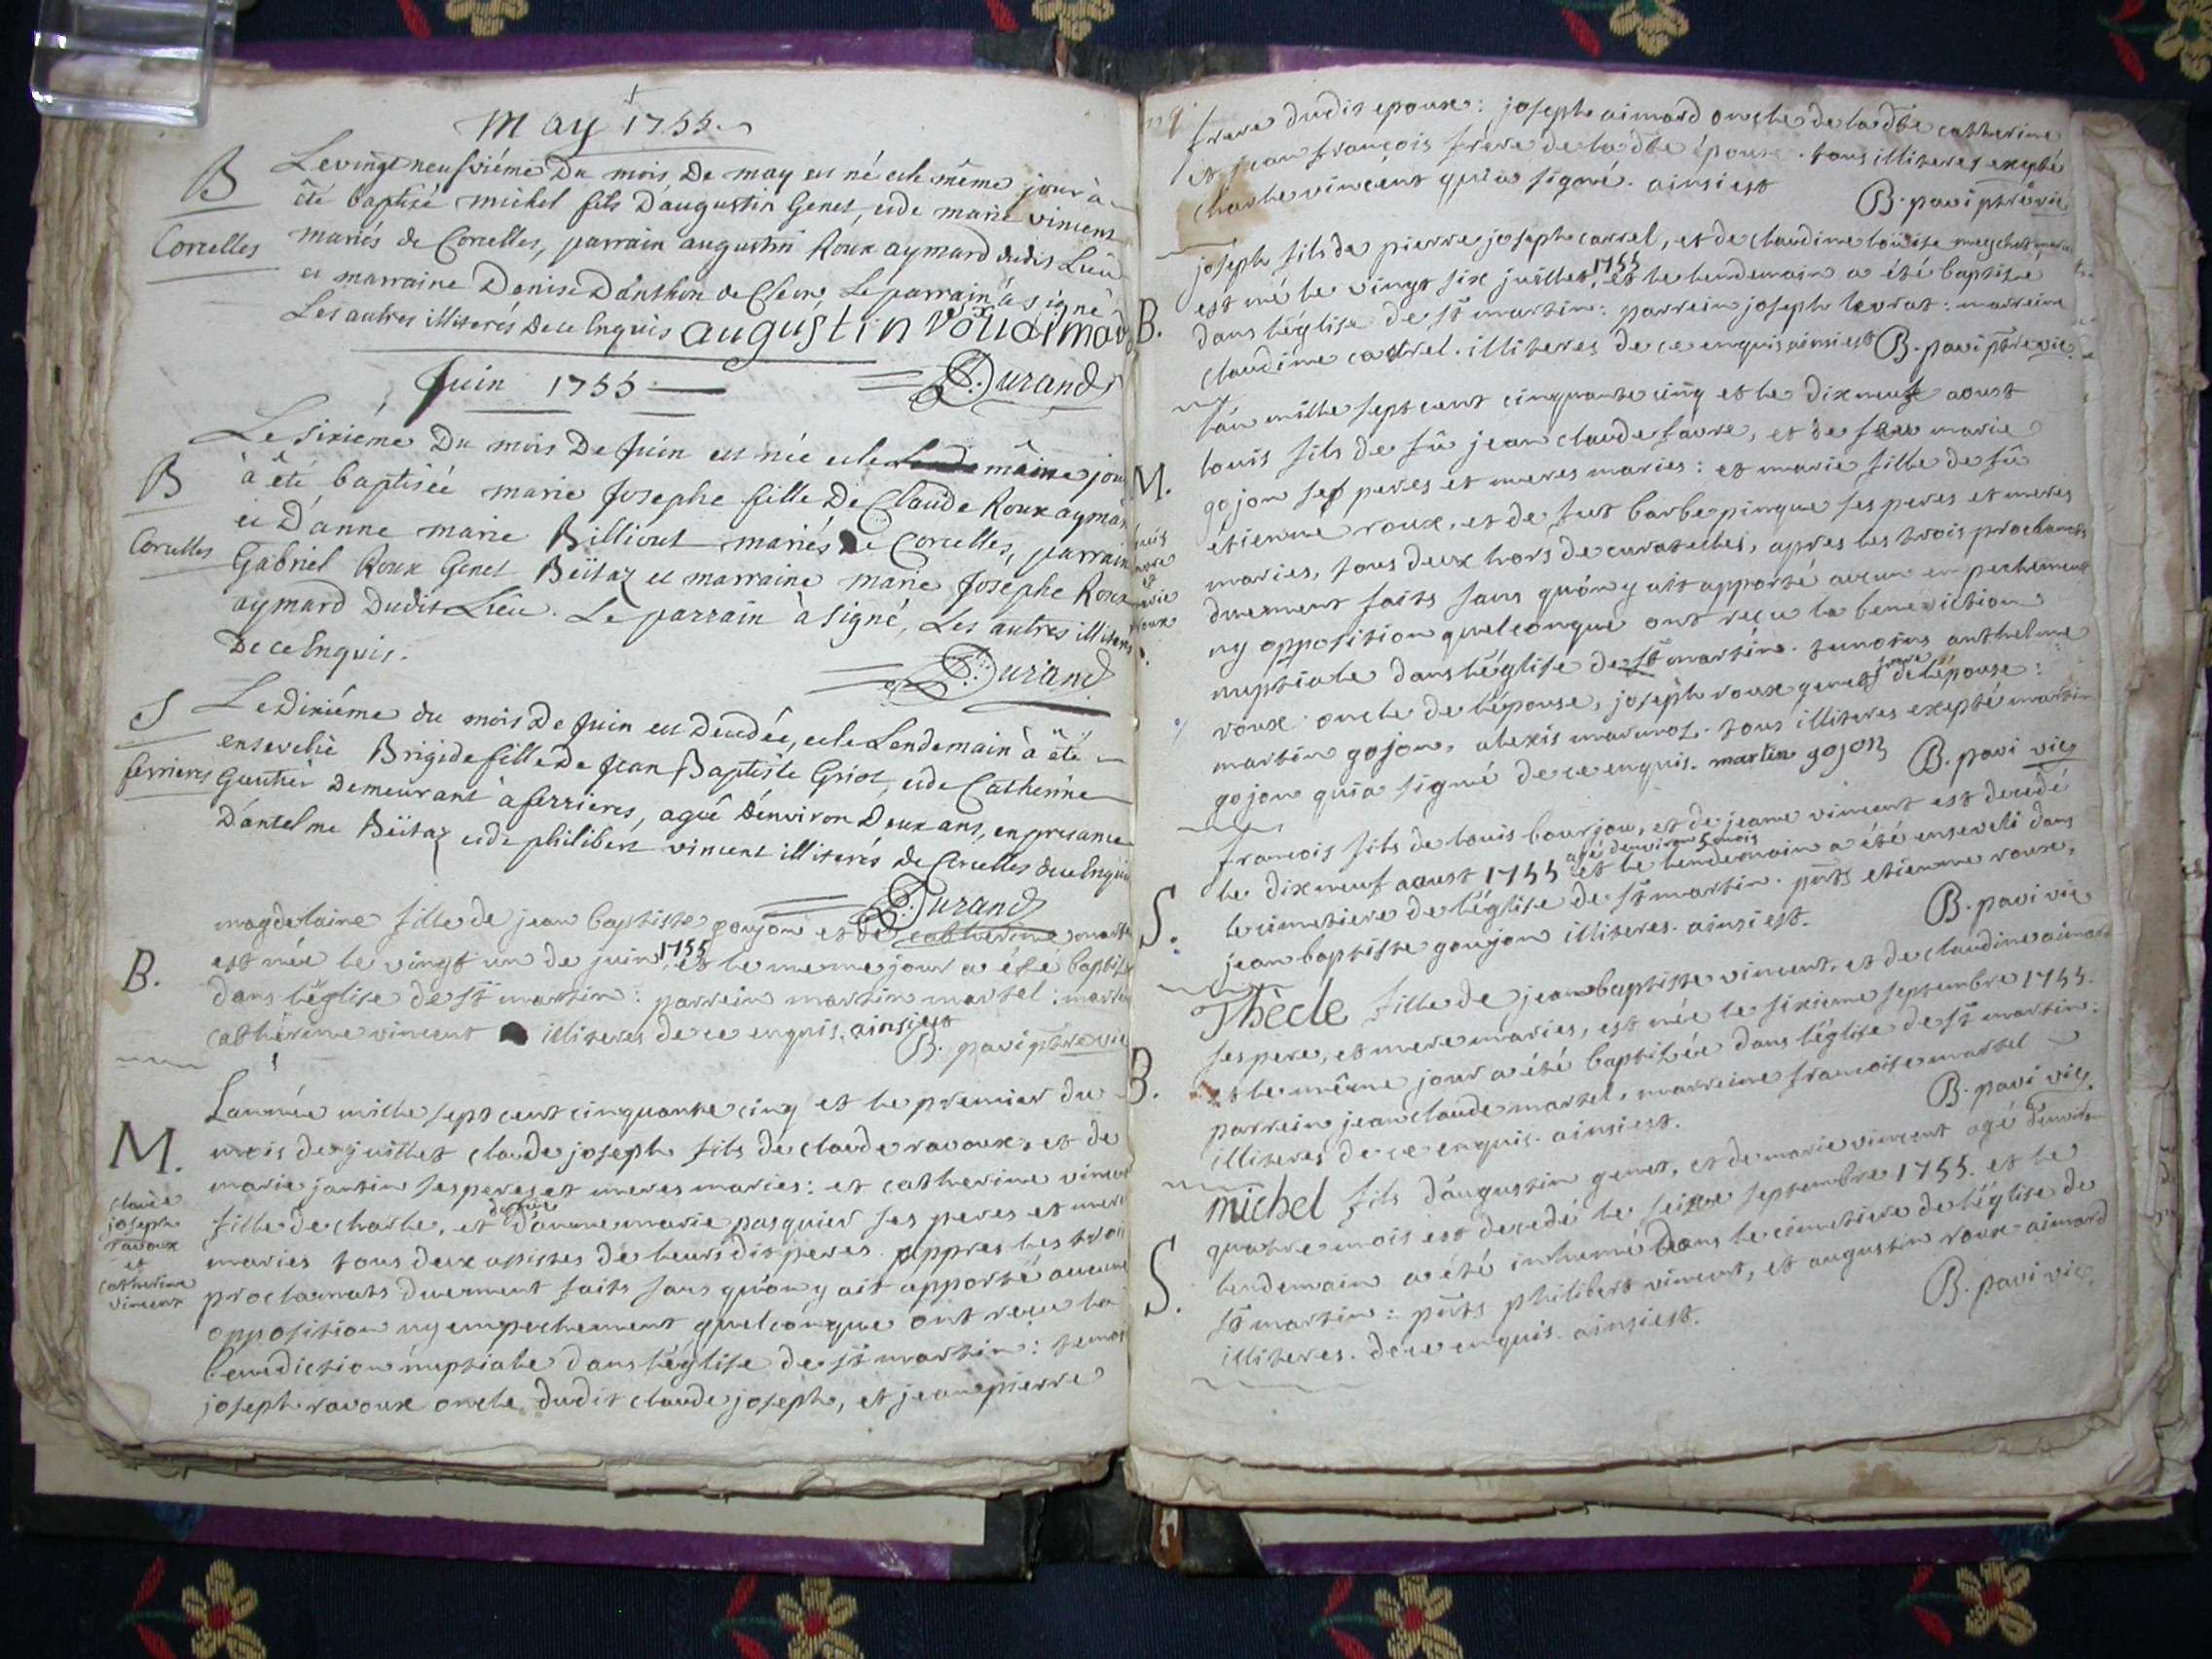 May 1755
B
Corcelles
Le vingt neufviéme Du mois De may est né et le même jour à
été baptisé michel fils D'augustin Genet, et de marie vincent
mariés de Corcelles, parrain augustin Roux aymard dudit Lieu
et marraine Denise Danthon de Cleon, Le parrain à signé
Les autres illiterés De ce Enquis augustin Rouxaimard
Durand
Juin 1755
B
Corcelles
Le sixiéme Du mois De Juin est née et le même jour
à été baptisée marie Josephe fille De Claude Roux aymard
et D'anne marie Billiout mariés De Corcelles, parrain
Gabriel Roux Genet Beïtaz et marraine marie Josephe Roux
aymard Dudit Lieu. Le parrain à signé, Les autres illiterés
De ce Enquis.
Durand
S
ferrieres
Le Dixiéme du mois De Juin est Decedée, et le Lendemain à été
ensevelie Brigide fille De Jean Baptiste Griot, et de Catherine
Gauthier Demeurant à ferrieres, agée D'environ Deux ans, en presance
D'antelme Beïtaz et de philibert vincent illiterés De Corcelles de ce Enquis
Durand
B.
magdelaine fille de jean baptiste goujon et de catherine martel
est née le vingt un de juin 1755 et le meme jour a été baptisée
dans l'église de st martin : parrein martin martel : marreine
catherine vincent illiteres de ce enquis. ainsi est
B. pavi ptre vic
M.
claude
joseph
ravoux
et
catherine
vincent
L'année mille sept cent cinquante cinq et le premier du
mois de juillet claude joseph fils de claude ravoux, et de
marie jantin ses peres et meres maries : et catherine vincent
fille de charle, et de feue d'anne marie pasquier ses peres et meres
maries tous deux assistes de leurs dit peres. appres les trois
proclamats duement faits sans qu'on y ait apporté aucune
opposition ny empechement quelconque ont reçu la
benediction nuptiale dans l'église de st martin : temoins
joseph ravoux oncle dudit claude joseph, et jean pierre
frere dudit epoux : joseph aimard oncle de la dte catherine
et jean françois frere de la dte épouse. tous illiteres exepté
charle vincent qui a signé. ainsi est
B. pavi ptre vic
B.
joseph fils de pierre joseph carrel, et de claudine loüise
est né le vingt six juillet 1755 et le lendemain a été baptisé
dans l'église de st martin : parrein joseph levrat : marreine
claudine carrel. illiteres de ce enquis ainsi est B. pavi ptre vic
M.
louis
favre
et
marie
roux
l'an mille sept cent cinquante cinq et le dix neuf aoust
louis fils de fû jean claude favre, et de feue marie
gojon ses peres et meres maries : et marie fille de fû
etienne roux, et de fut barbe pingue ses peres et meres
maries, tous deux hors de curatelles, apres les trois proclamats
duement faits sans qu'on y ait apporté aucun empechement
ny opposition quelconque ont reçu la benediction
nuptiale dans l'église de st martin. temoins anthelme
roux oncle de l'épouse, joseph roux genet frere de l'épouse :
martin gojon, alexis marmot. tous illiteres exepté martin
gojon qui a signé de ce enquis. martin gojon B. pavi vic
S.
francois fils de louis bourjon, et de jeane vincent est decedé
le dix neuf aoust 1755 agé d'environ 5 mois et le lendemain a été enseveli dans
le cimetiere de l'église de st martin. pnts etienne roux,
jean baptiste goujon illiteres. ainsi est. B. pavi vic
B.
Thècle fille de jean baptiste vincent, et de claudine aimard
ses pere, et mere maries, est née le sixieme septembre 1755.
et le même jour a été baptisée dans l'église de st martin :
parrein jean claude martel, marreine francoise martel
illiteres de ce enquis. ainsi est. B. pavi vic
S.
michel fils d'augustin genet, et de marie vincent agé d'environ
quatre mois est decedé le seixe septembre 1755. et le
lendemain a été inhumé dans le cimetiere de l'église de
st martin : pnts philibert vincent, et augustin roux-aimard
illiteres. de ce enquis. ainsi est. B. pavi vic